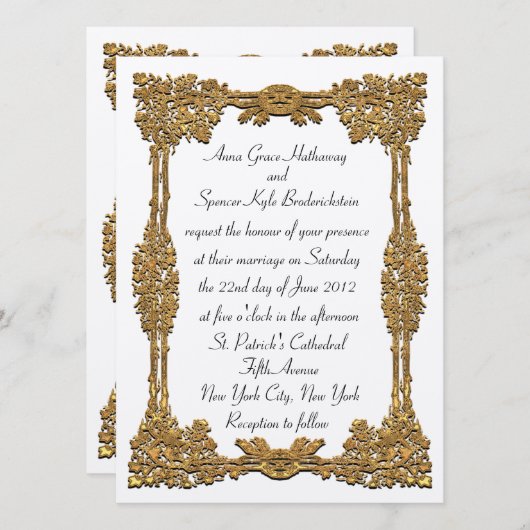 Anna Grace Hathaway
and
Spencer Kyle Broderickstein
request the honour of your presence
at their marriage on Saturday
the 22nd day of June 2012
at five o'clock in the afternoon
St. Patrick's Cathedral
Fifth Avenue
New York City, New York
Reception to follow